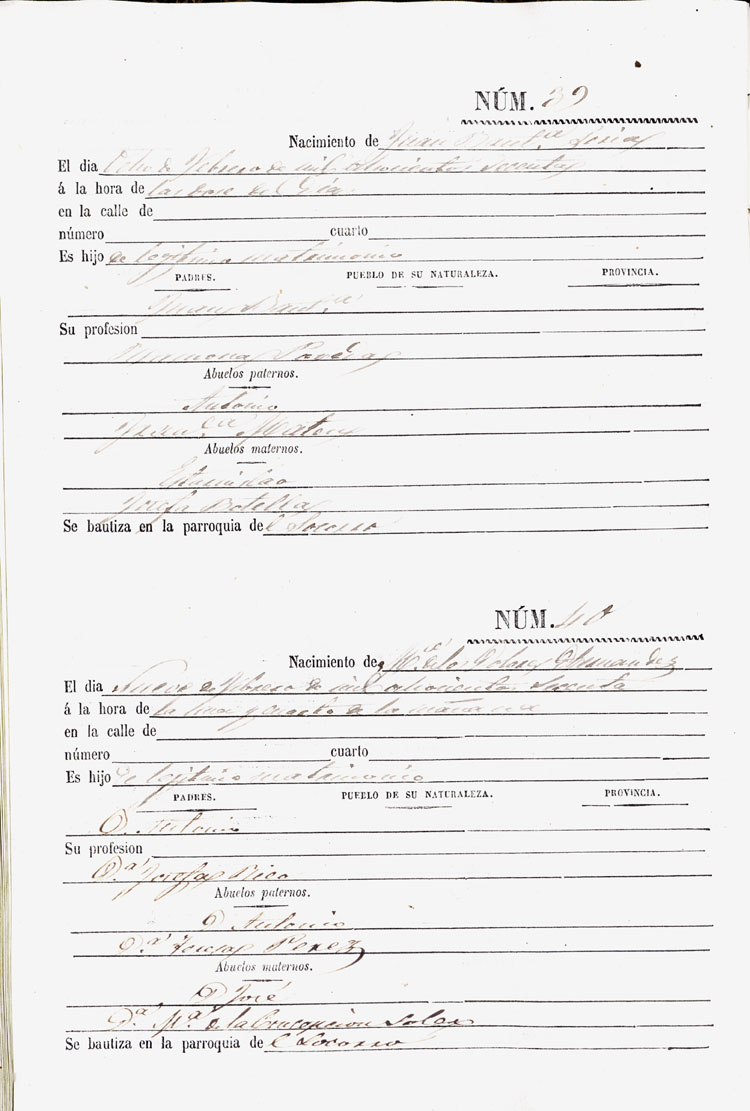 NÚM. 39
Nacimiento de Juan Baut.ta
El dia Ocho de Febrero de mil ochocientos secenta
á la hora de las doce del dia
en la calle de
número cuarto
Es hijo de legitimo matrimonio
PADRES. PUEBLO DE SU NATURALEZA. PROVINCIA.
Juan Baut.ta
Su profesion
Ramona
Abuelos paternos.
Antonio
Mateu
Abuelos maternos.
Estanislao
Josefa Botella
Se bautiza en la parroquia de el Socorro
NÚM. 40
Nacimiento de M.ª de los Dolores Hernandez
El dia Nueve de Febrero de mil ochocientos secenta
á la hora de la una y cuarto de la mañana
en la calle de
número cuarto
Es hijo de legitimo matrimonio
PADRES. PUEBLO DE SU NATURALEZA. PROVINCIA.
D. Antonio
Su profesion
D.ª Josefa Rico
Abuelos paternos.
D Antonio
D.ª Teresa Perez
Abuelos maternos.
D José
D.ª M.ª de la Concepcion Soler
Se bautiza en la parroquia de el Socorro